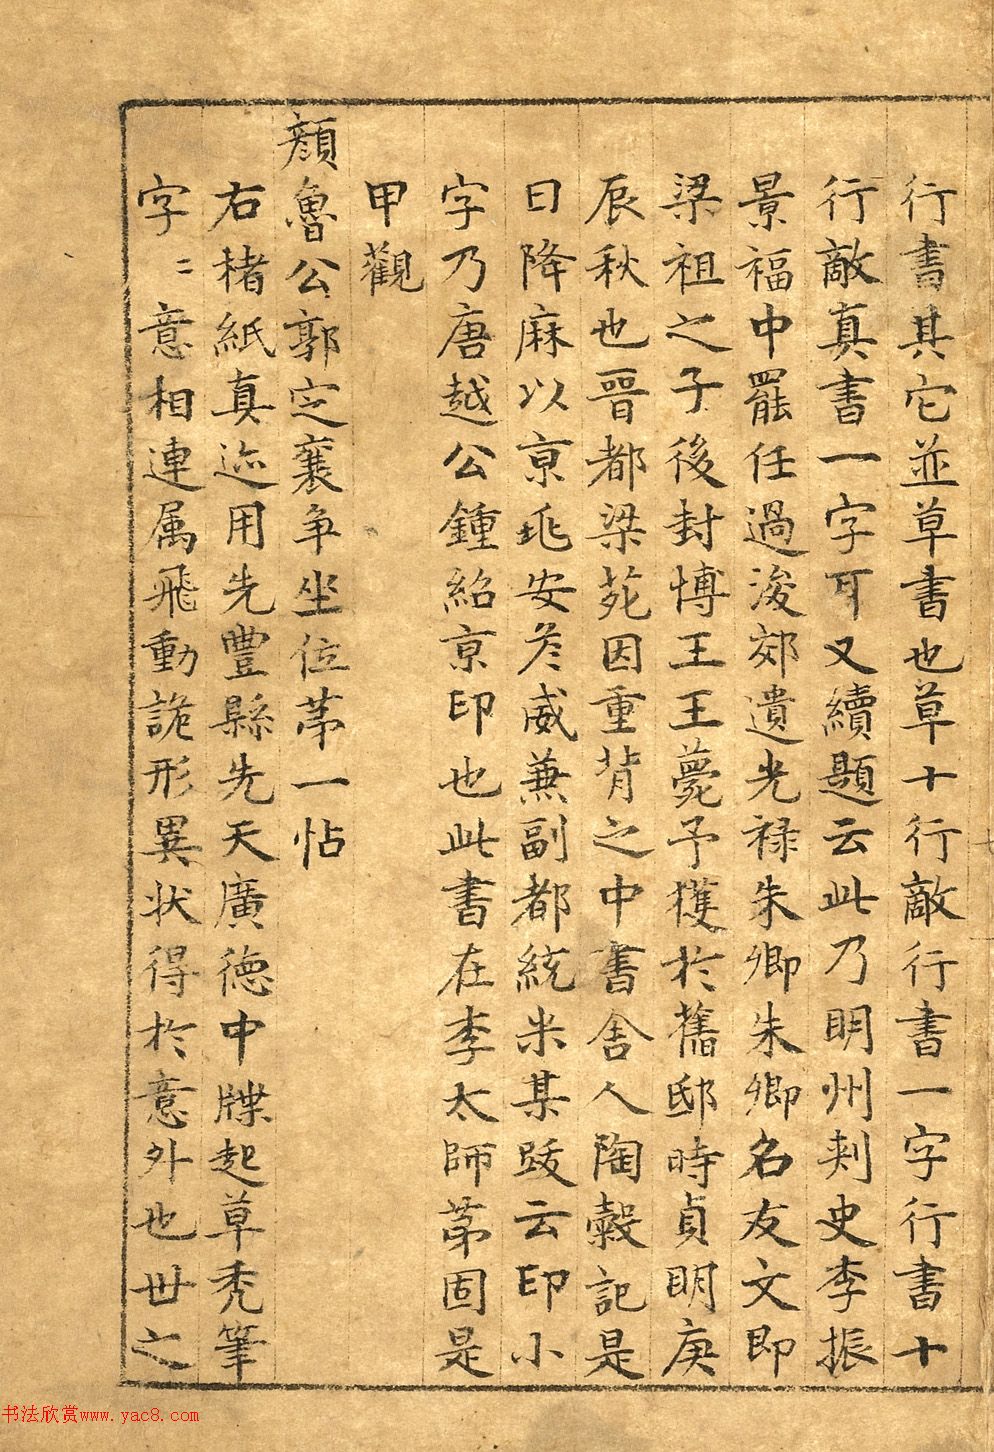 行書其它並草書也草十行敵行書一字行書十
行敵真書一字可又續題云此乃明州刺史李振
景福中罷任過浚郊遺光禄朱卿朱卿名友文即
梁祖之子後封博王王薨予獲於舊邸時貞明庚
辰秋也晉都梁苑因重背之中書舍人陶穀記是
日降麻以京兆安彦威兼副都統米某跋云印小
字乃唐越公鍾紹京印也此書在李太師茅固是
甲觀
顏魯公郭定襄争坐位茅一帖
右楮紙真迹用先豐縣先天廣德中牒起草秃筆
字〻意相連属飛動詭形異状得於意外也世之
书法欣赏www.yac8.com